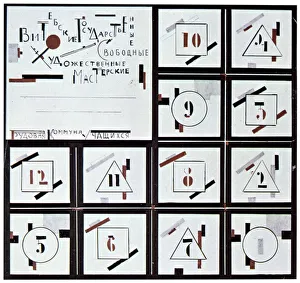 ВИТЕБСКИЕ ГОСУДАРСТВЕННЫЕ
СВОБОДНЫЕ
ХУДОЖЕСТВЕННЫЕ
МАСТЕРСКИЕ
ТРУДОВАЯ КОММУНА УЧАЩИХСЯ
10 4
9 3
12 11 8 2
5 6 7